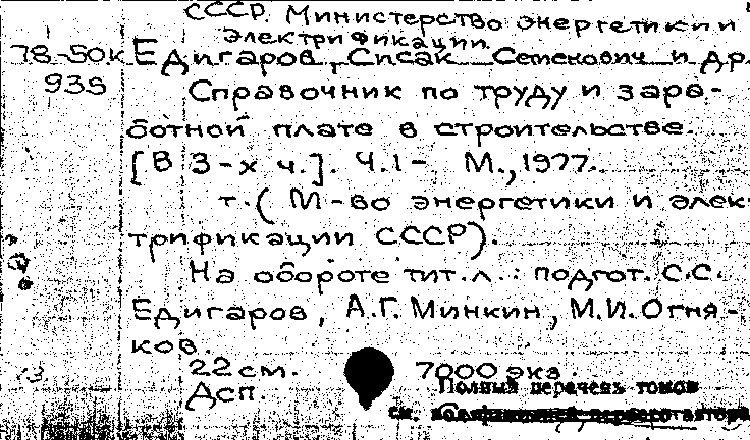 СССР. Министерство энергетики и
электрификации.
78-50к Едигаров, Сисак Семенович и др.
935 Справочник по труду и зара-
ботной плате в строительстве...
[В 3-х ч.]. Ч.1- М., 1977.
т. (М-во энергетики и элек-
трификации СССР).
На обороте тит.л.: подгот. С.С.
Едигаров, А.Г. Минкин, М.И. Огня-
ков.
22 см. 7000 экз.
Дсп. Полный перечень томов
см.